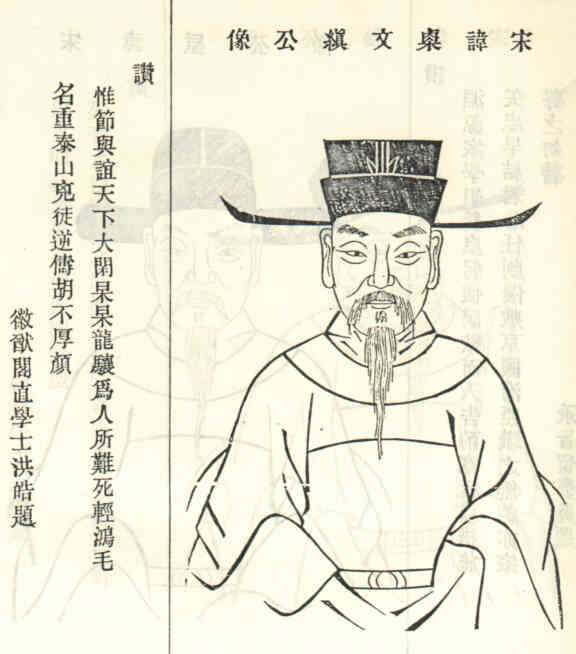 宋諱粲文縝公像
讚
惟節與誼天下大閑杲杲龍驤爲人所難死輕鴻毛
名重泰山兇徒逆儔胡不厚顏
徽猷閣直學士洪皓題